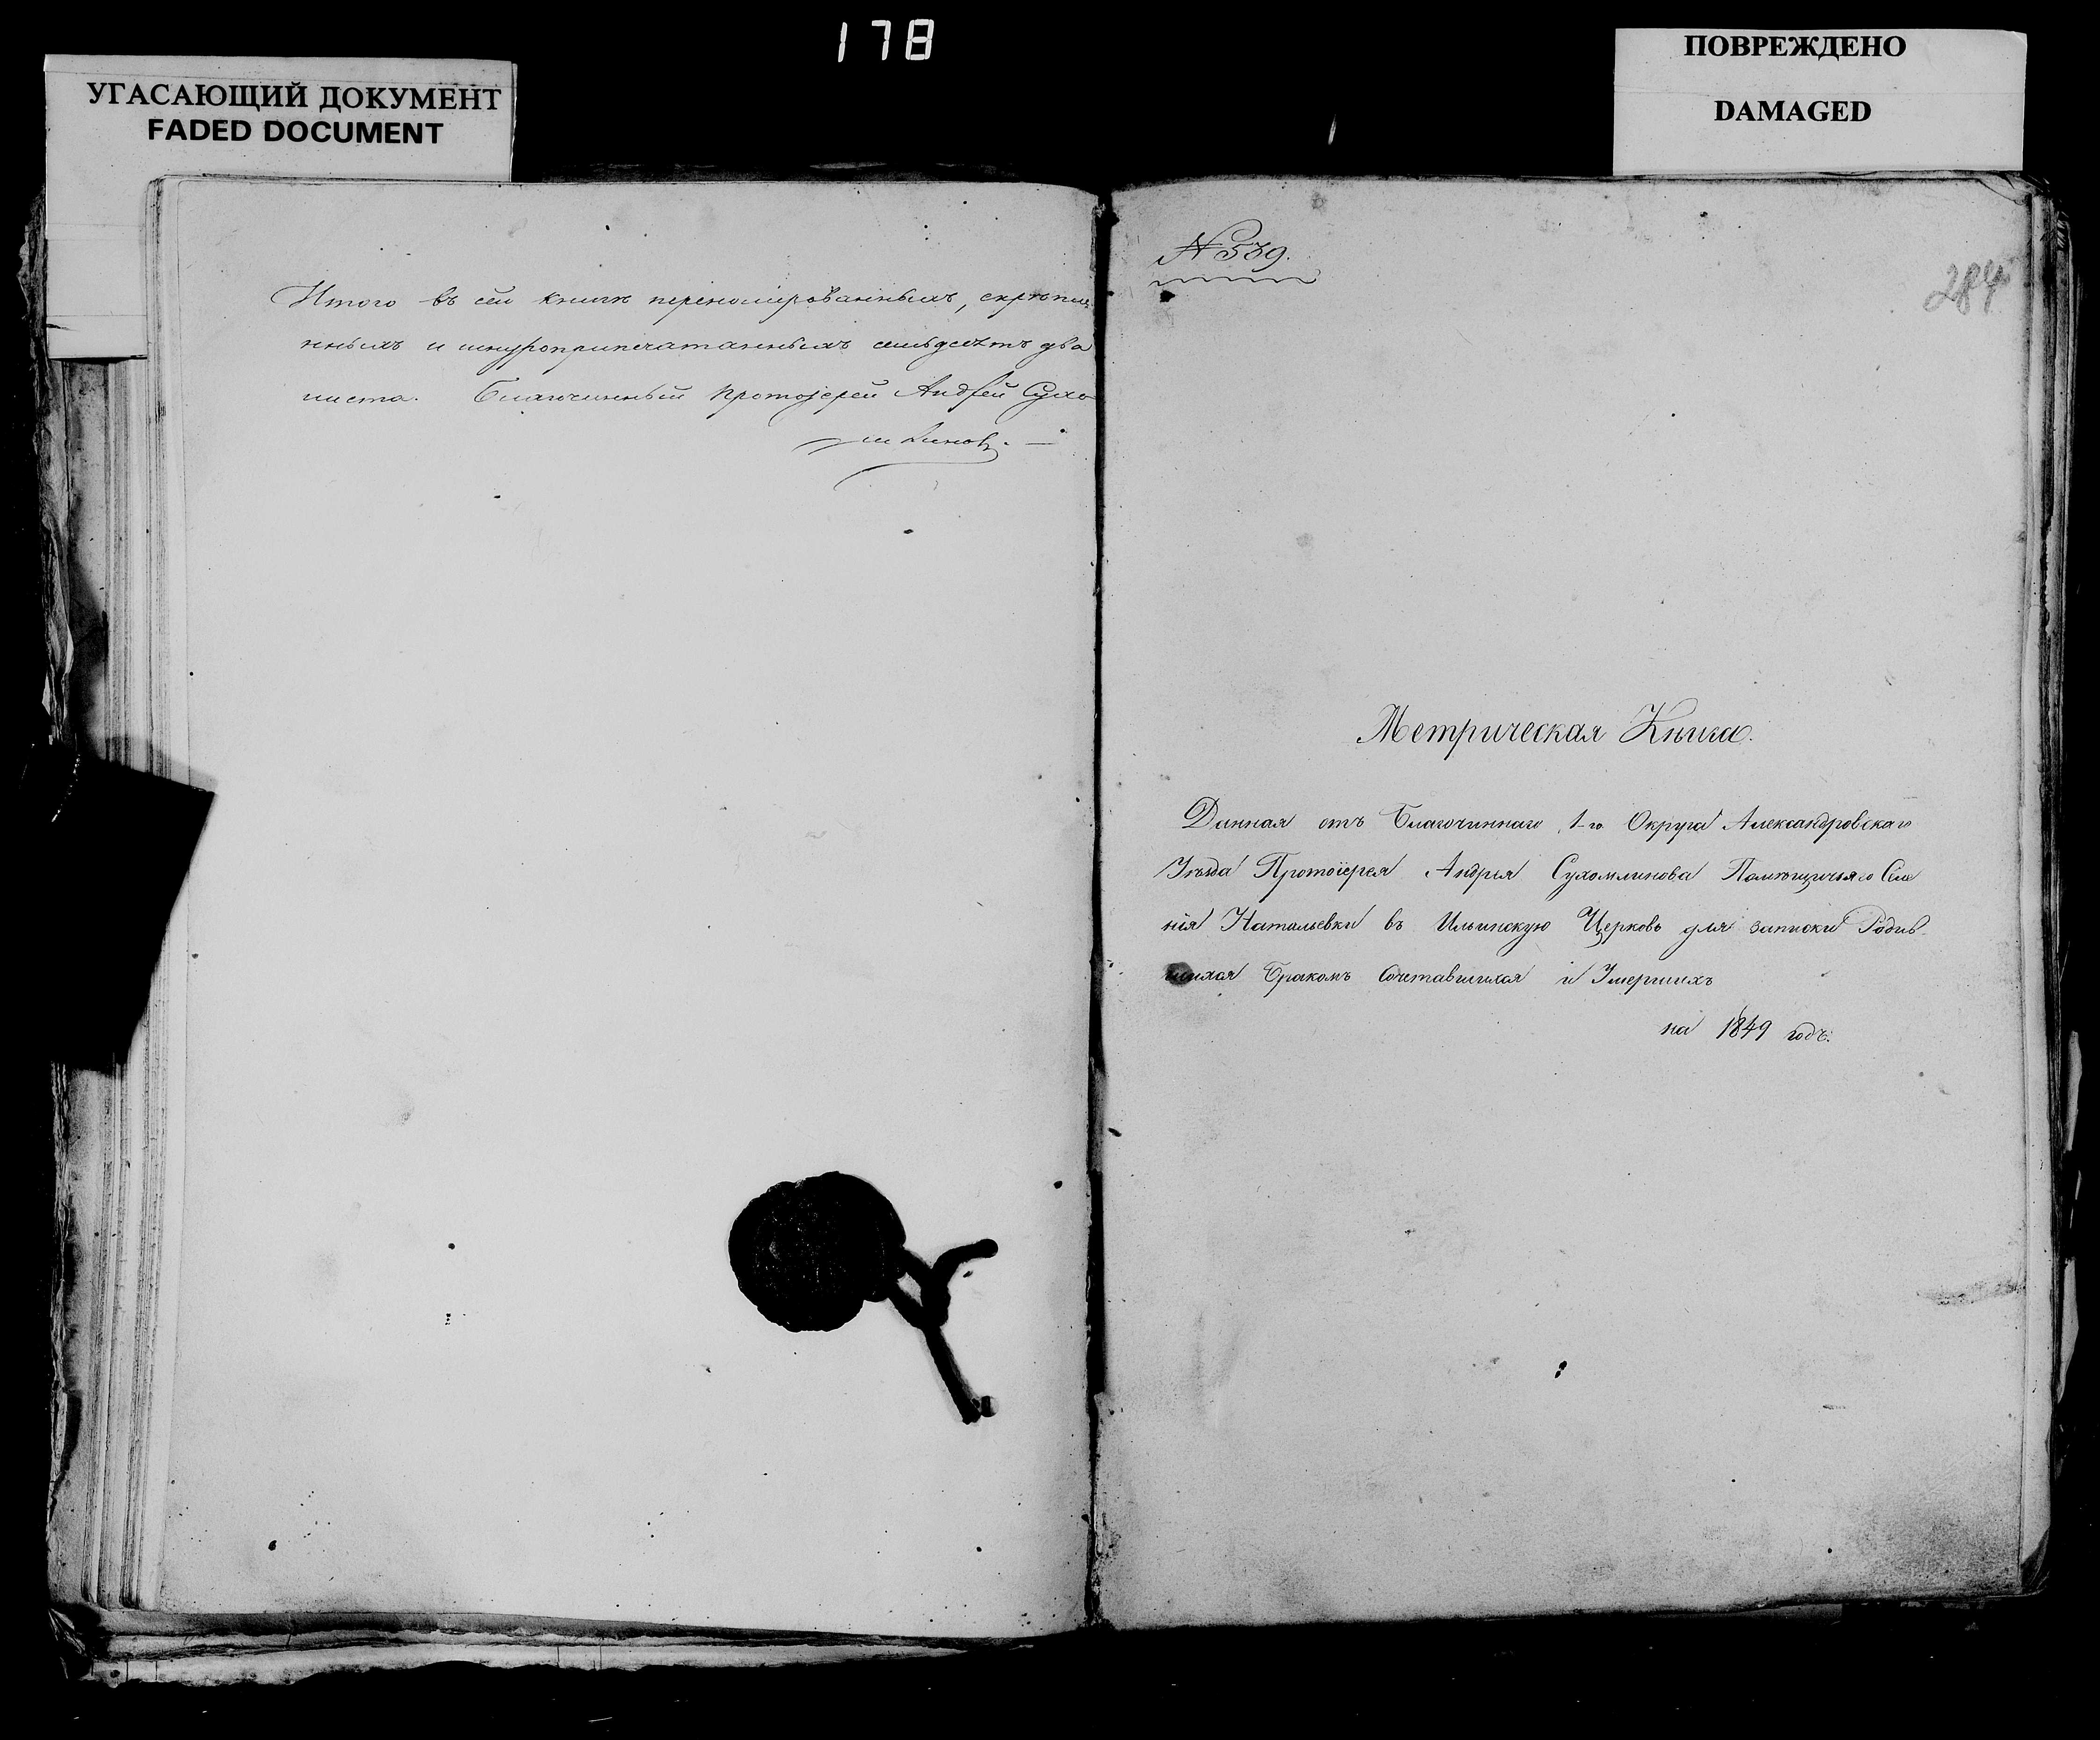 178
УГАСАЮЩИЙ ДОКУМЕНТ
FADED DOCUMENT
ПОВРЕЖДЕНО
DAMAGED
Итого въ сей книгѣ переномерованныхъ, скрѣпле
нныхъ и шнуроприпечатанныхъ семьдесятъ два
листа. Благочинный Протоіерей Андрей Сухо
млиновъ. —
№ 539.
284
Метрическая Книга.
Данная отъ Благочиннаго 1-го Округа Александровскаго
Уѣзда Протоіерея Андрея Сухомлинова Помѣщичьяго Селе
нія Натальевки въ Ильинскую Церковь для записки Родив
шихся Бракомъ Сочетавшихся и Умершихъ
на 1849 годъ.